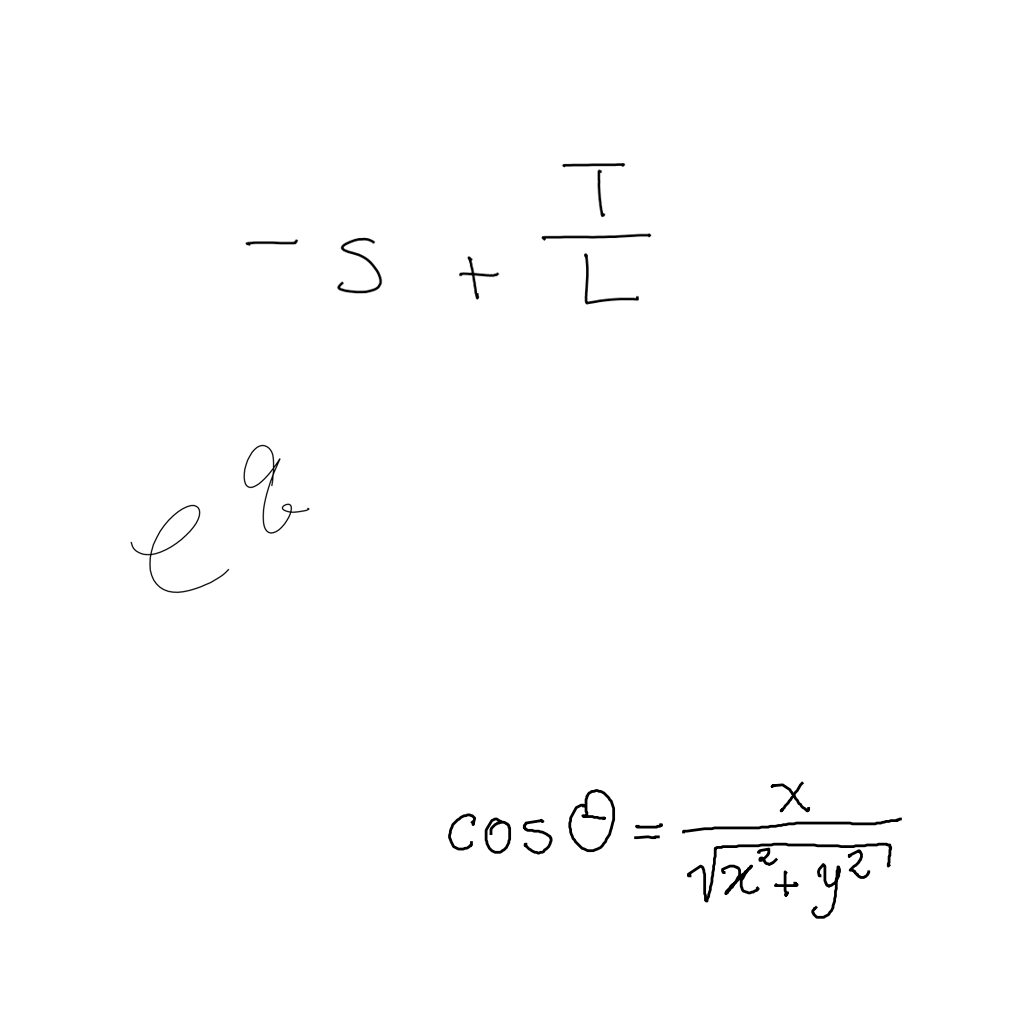 $-s + \frac{T}{L}$
$e^{q}$
$\cos \theta = \frac{x}{\sqrt{x^2 + y^2}}$